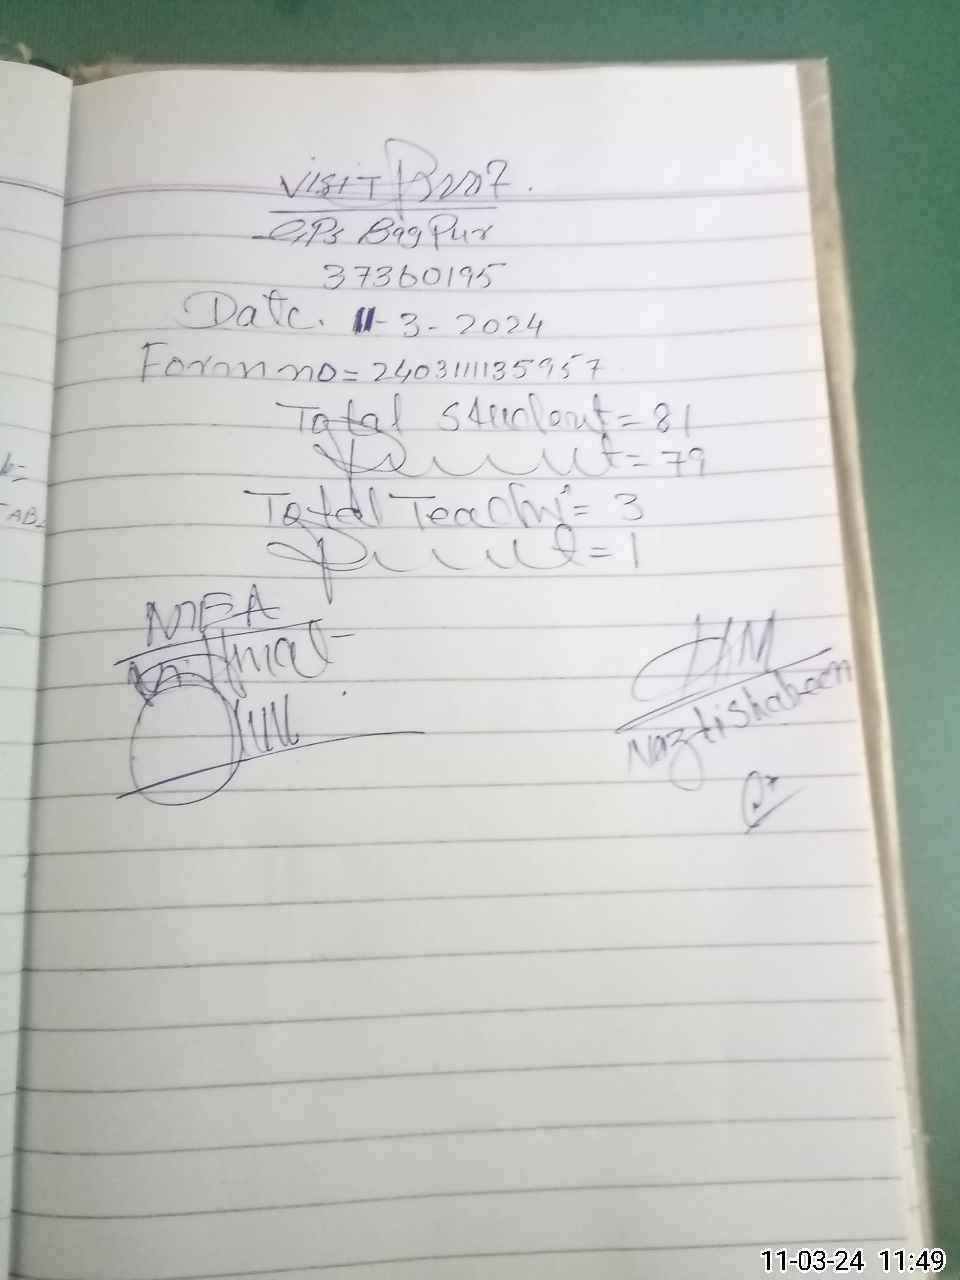 VISIT
GPS Bagpur
37360195
Date. 11-3-2024
Form no = 2403111135957
Total Student = 81
Present = 79
Total Teacher = 3
Present = 1
MEA
HM
Nazti Shaheen
11-03-24 11:49